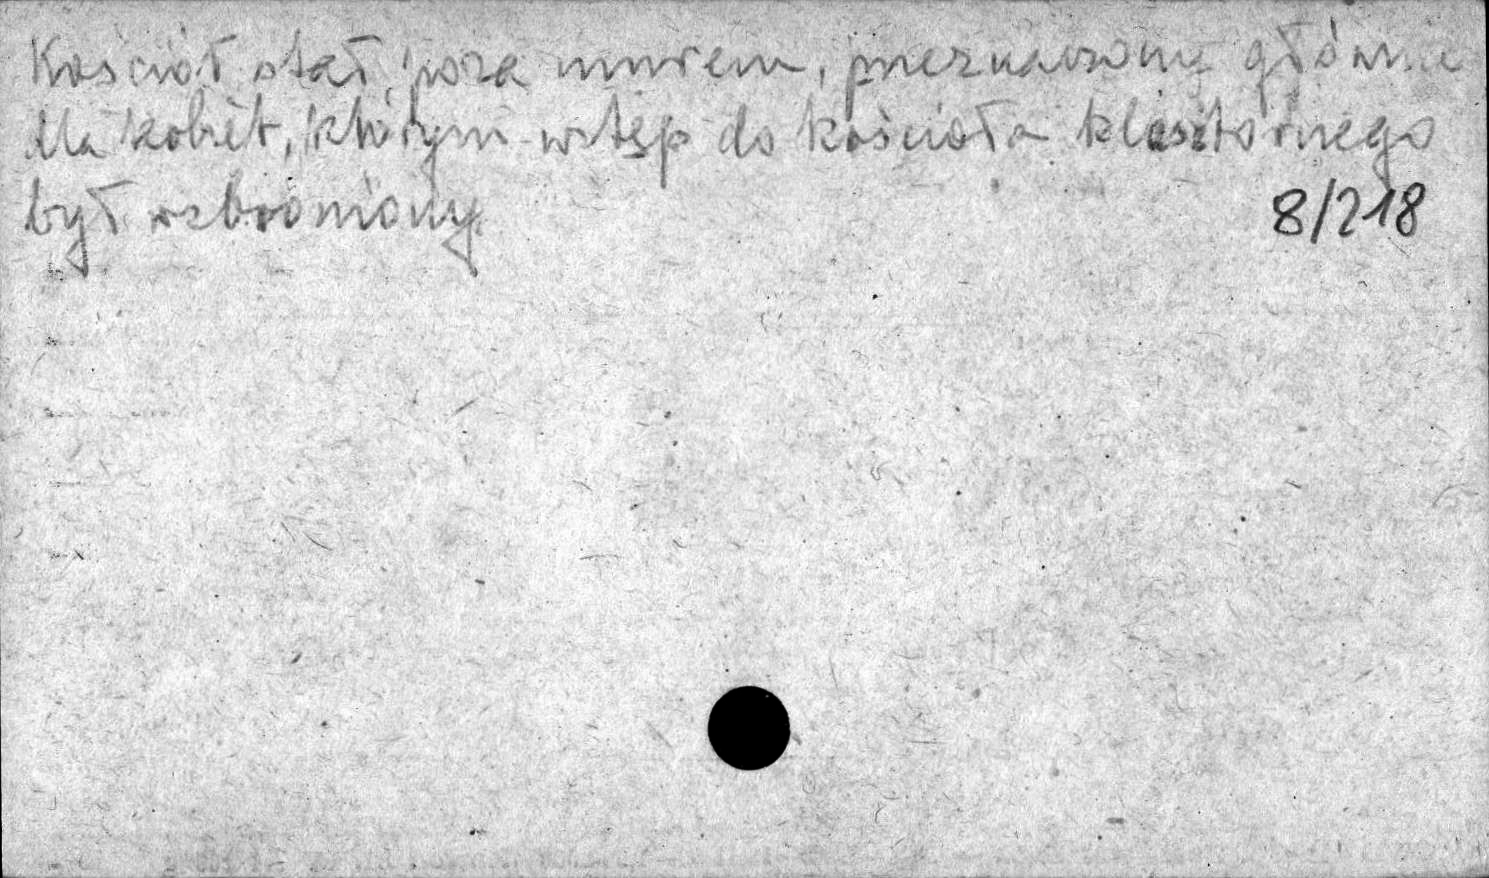 Kościół stał poza murem, przeznaczony głównie
dla kobiet, którym wstęp do kościoła klasztornego
był wzbroniony.
8/218